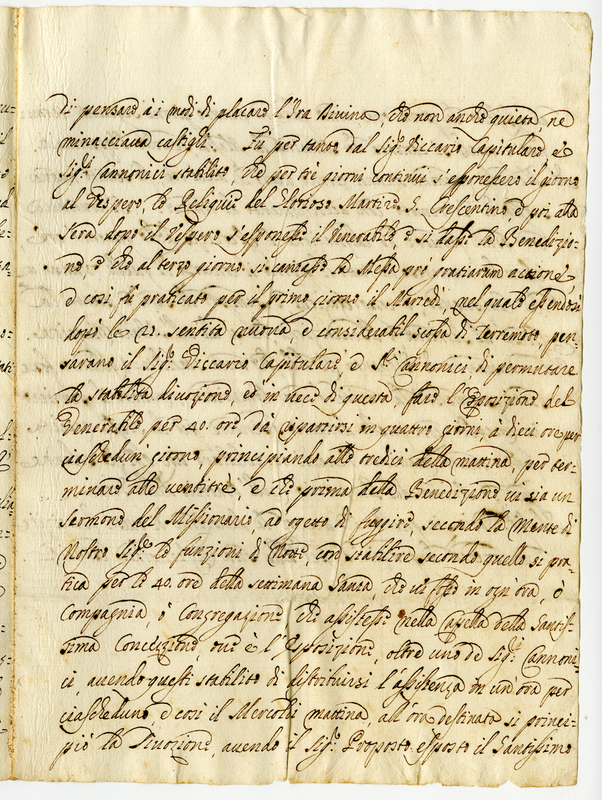 di pensare à i modi di placare l'Ira Divina che non anche quieta, ne
minacciaua castighi. Fù per tanto dal Sig.r Viccario Capitulare e
Sig.ri Cannonici stabilito che per trè giorni continui s'esponessero il giorno
al Vespero le Reliquie del Glorioso Martire S. Crescentino e poi alla
sera dopo il Vespero s'esponesse il Venerabile, e si dasse la Benedizio=
ne, e che al terzo giorno si cantasse la Messa pro gratiarum actione
e così fù praticato per il primo giorno il Martedì nel quale essendosi
dopo le 21. sentita nuoua, e considerabil scossa di Terremoto, pen=
sarono il Sig.r Viccario Capitulare, e SS.ri Cannonici di permutare
la stabilita diuozione ed in uece di questa fare l'Esposizione del
Venerabile per 40. ore, da spartirsi in quattro giorni, à dieci ore per
ciaschedun giorno, principiando alle tredici della mattina, per ter=
minare alle ventitrè, e che prima della Benedizione ui sia un
sermone del Missionario ad ogetto di fuggire, secondo la Mente di
Nostro Sig.re le funzioni di Notte, con stabilire secondo quello si pra=
tica per le 40. ore della settimana Santa, che ui fosse in ogn'ora, ò
Compagnia, ò Congregazione che assistesse nella Capella della Santis=
sima Concezzione, oue è l'Esposizione, oltre uno de Sig.ri Cannoni=
ci, auendo questi stabilito di distribuirsi l'assistenza in un'ora per
ciascheduno e così il Mercordì mattina, all'ora destinata si princi=
piò la Diuozione, auendo il Sig.r Proposto esposto il Santissimo